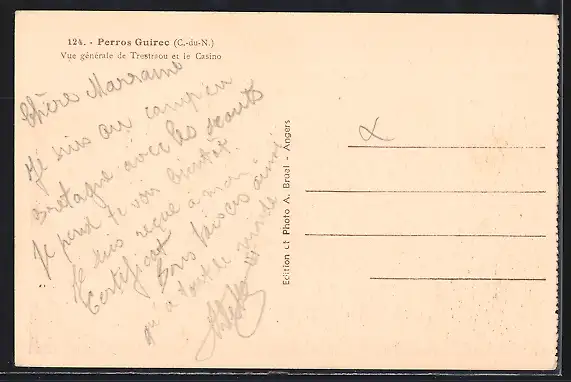 124. - Perros Guirec (C.-du-N.)
Vue générale de Trestraou et le Casino
Chère Marraine
Je suis au camp en
Bretagne avec les scouts
Je pense te voir bientôt.
Je suis reçue a mon
Certificat
Bons baisers ainsi
qu'a tout le monde
Edition et Photo A. Bruel - Angers